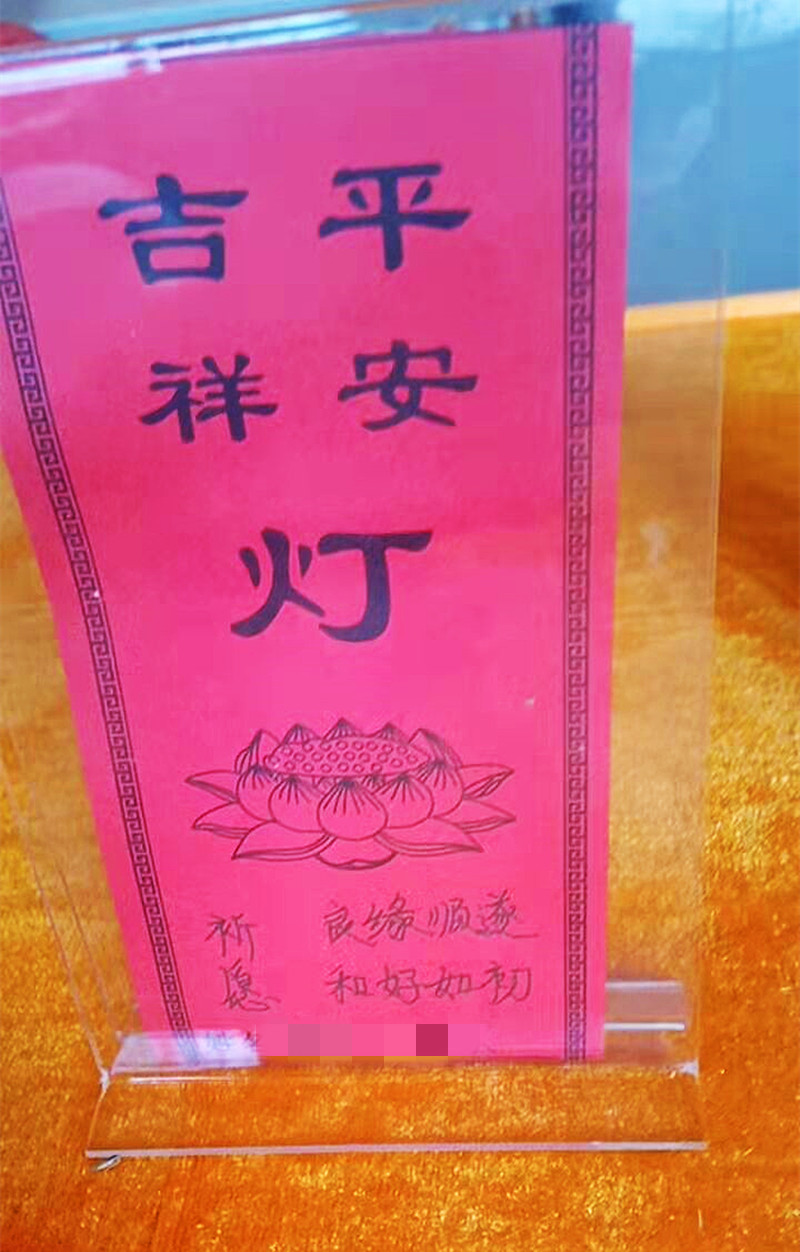 平安
吉祥
灯
祈愿
良缘顺遂
和好如初